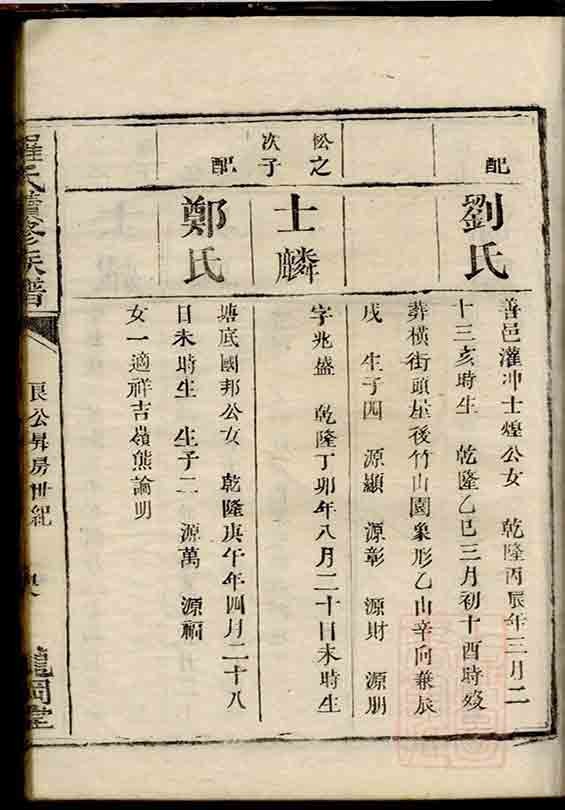 配
劉氏
善邑灌冲士煌公女 乾隆丙辰年三月二
十三亥時生 乾隆乙巳三月初十酉時歿
葬橫街頭屋後竹山園象形乙山辛向兼辰
戌 生子四 源顯 源彰 源財 源朋
忪之
次子
士麟
字兆盛 乾隆丁卯年八月二十日未時生
配
鄭氏
塘底國邦公女 乾隆庚午年四月二十八
日未時生 生子二 源萬 源福
女一適祥吉嶺熊論明
羅氏續修族譜
良公昇房世紀
龍岡堂